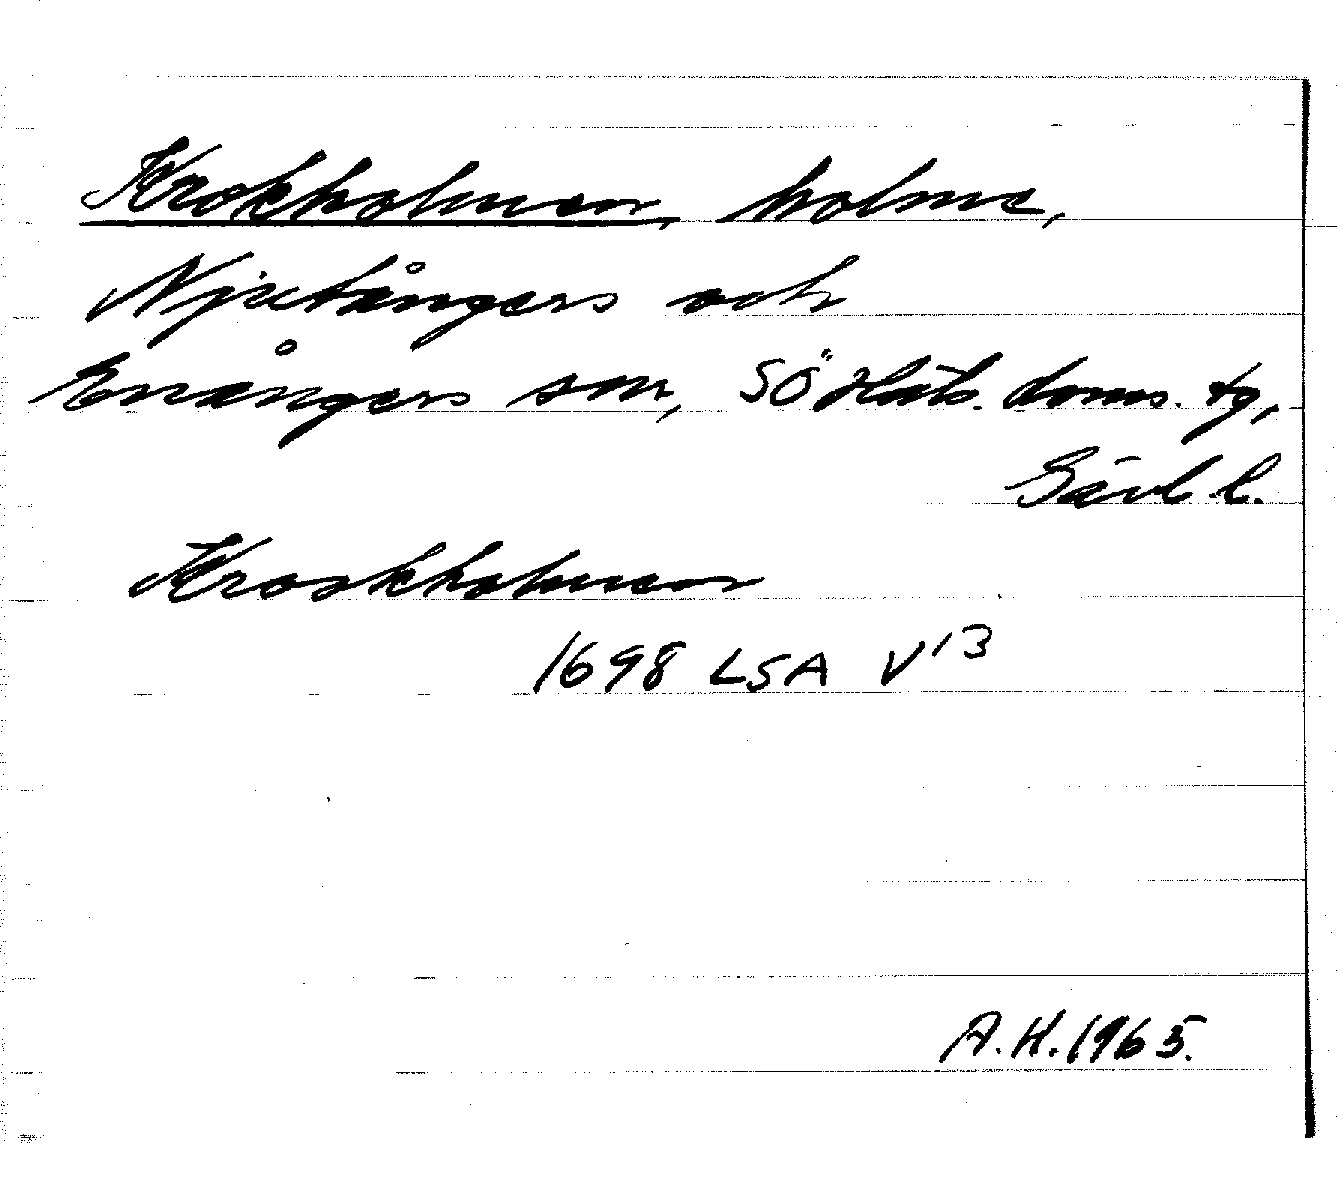 Krokholmen, holme,
Njutångers och
Enångers snr, SÖ Häls. doms. tg,
Gävl. l.
Krookholmen
1698 LSA V 13
A.H. 1965.